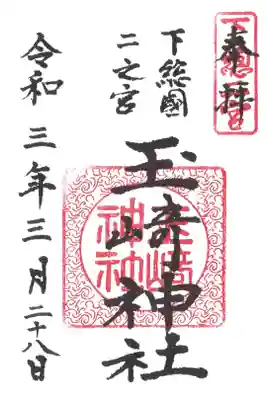 奉拝
下総國
二之宮
玉崎神社
令和三年三月二十八日